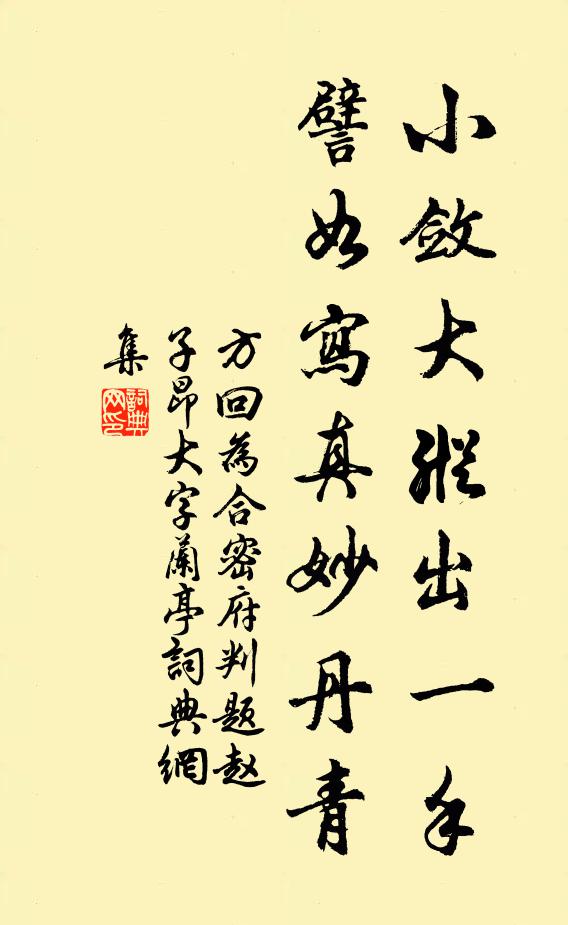 小斂大縱出一手
譬如寫真妙丹青
方回為合密府判題赵
子昂大字蘭亭詞典網
集
詞典網印